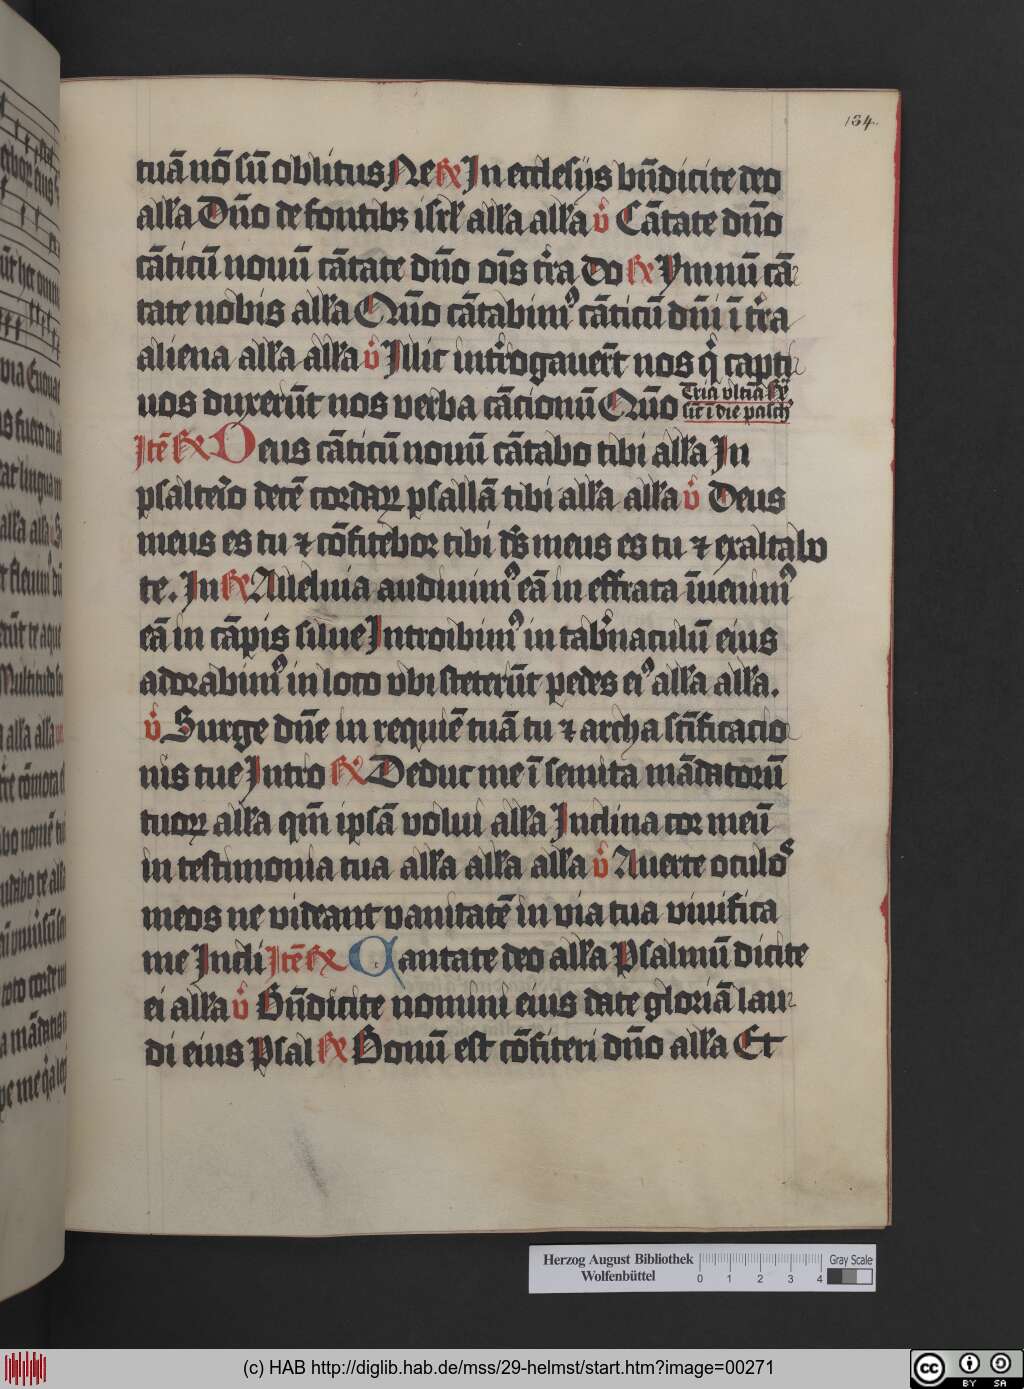 134.
tuā nō sū oblitus Ne ℟ In ecclesijs bn̄dicite deo
all'a Dn̄o de fontibꝫ isrl' all'a all'a v̊ Cātate dn̄o
cāticū nouū cātate dn̄o oīs t'ra Do ℟ Ymnū cā-
tate nobis all'a Quō cātabimꝰ cāticū dn̄i ī t'ra
aliena all'a all'a v̊ Illic int'rogauer̄t nos q' capti-
uos duxerūt nos verba cācionū Quō
Itē ℟ Deus cāticū nouū cātabo tibi all'a In
psalter'io decē cordaꝝ psallā tibi all'a all'a v̊ Deus
meus es tu ⁊ cōfitebor tibi ds̄ meus es tu ⁊ exaltabo
te. In ℟ Alleluia audiuimꝰ eā in effrata īuenimꝰ
eā in cāpis silue Introibimꝰ in tab'naculū eius
adorabimꝰ in loco vbi steterūt pedes eiꝰ all'a all'a.
v̊ Surge dn̄e in requiē tuā tu ⁊ archa sc̄ificacio
nis tue Intro ℟ Deduc me ī semita mādatorū
tuoꝝ all'a qm̄ ipsā volui all'a Inclina cor meū
in testimonia tua all'a all'a all'a v̊ Auerte oculos
meos ne videant vanitatē in via tua viuifica
me Incli Itē ℟ Cantate deo all'a Psalmū dicite
ei all'a v̊ Bn̄dicite nomini eius date gloriā lau-
di eius Psal ℟ Bonū est cōfiteri dn̄o all'a Et
Herzog August Bibliothek
Wolfenbüttel
0 1 2 3 4
Gray Scale
(c) HAB http://diglib.hab.de/mss/29-helmst/start.htm?image=00271
cc BY SA